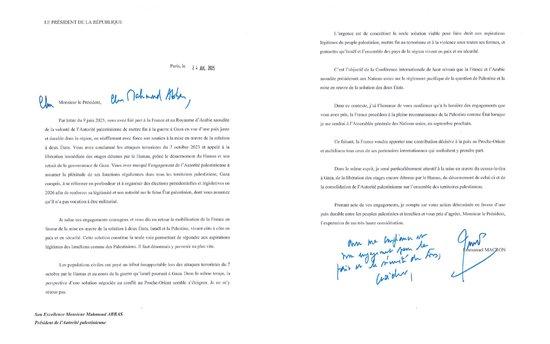 LE PRÉSIDENT DE LA RÉPUBLIQUE
Paris, le 24 JUIL 2025
Cher Monsieur le Président, Cher Mahmoud Abbas,
Par lettre du 9 juin 2025, vous avez fait part à la France et au Royaume d'Arabie saoudite
de la volonté de l'Autorité palestinienne de mettre fin à la guerre à Gaza en vue d'une paix juste et
durable dans la région, en réaffirmant avec force son soutien à la mise en œuvre de la solution
à deux États. Vous avez condamné les attaques terroristes du 7 octobre 2023 et appelé à la
libération immédiate des otages détenus par le Hamas, prôné le désarmement du Hamas et son
retrait de la gouvernance de Gaza. Vous avez marqué l'engagement de l'Autorité palestinienne à
assumer la plénitude de ses fonctions régaliennes dans tous les territoires palestiniens, Gaza
compris, à se réformer en profondeur et à organiser des élections présidentielles et législatives en
2026 afin de renforcer sa légitimité et son autorité sur le futur État palestinien, dont vous assurez
qu'il n'a pas vocation à être militarisé.
Je salue ces engagements courageux et vous dis en retour la mobilisation de la France en
faveur de la mise en œuvre de la solution à deux États, Israël et la Palestine, vivant côte à côte
en paix et en sécurité. Cette solution constitue la seule voie permettant de répondre aux aspirations
légitimes des Israéliens comme des Palestiniens. Il faut désormais y parvenir au plus vite.
Les populations civiles ont payé un tribut insupportable lors des attaques terroristes du 7
octobre par le Hamas et au cours de la guerre qu'Israël poursuit à Gaza. Dans le même temps, la
perspective d'une solution négociée au conflit au Proche-Orient semble s'éloigner. Je ne m'y
résous pas.
Son Excellence Monsieur Mahmoud ABBAS
Président de l'Autorité palestinienne
L'urgence est de concrétiser la seule solution viable pour faire droit aux aspirations
légitimes du peuple palestinien, mettre fin au terrorisme et à la violence sous toutes ses formes, et
permettre qu'Israël et l'ensemble des pays de la région vivent en paix et en sécurité.
C'est l'objectif de la Conférence internationale de haut niveau que la France et l'Arabie
saoudite président aux Nations unies sur le règlement pacifique de la question de Palestine et la
mise en œuvre de la solution des deux États.
Dans ce contexte, j'ai l'honneur de vous confirmer qu'à la lumière des engagements que
vous avez pris, la France procédera à la pleine reconnaissance de la Palestine comme État lorsque
je me rendrai à l'Assemblée générale des Nations unies, en septembre prochain.
Ce faisant, la France voudra apporter une contribution décisive à la paix au Proche-Orient
et mobilisera tous ceux de ses partenaires internationaux qui souhaitent y prendre part.
Dans le même esprit, je serai particulièrement attentif à la mise en œuvre du cessez-le-feu,
de la libération des otages détenus par le Hamas, du désarmement de celui-ci et de
la consolidation de l'Autorité palestinienne sur l'ensemble des territoires palestiniens.
Prenant acte de vos engagements, je compte sur votre action déterminée en faveur d'une
paix durable entre les peuples palestinien et israélien et vous prie d'agréer, Monsieur le Président,
l'expression de ma très haute considération.
Avec ma confiance et
mon engagement pour la
paix et la sécurité de tous,
Emmanuel MACRON